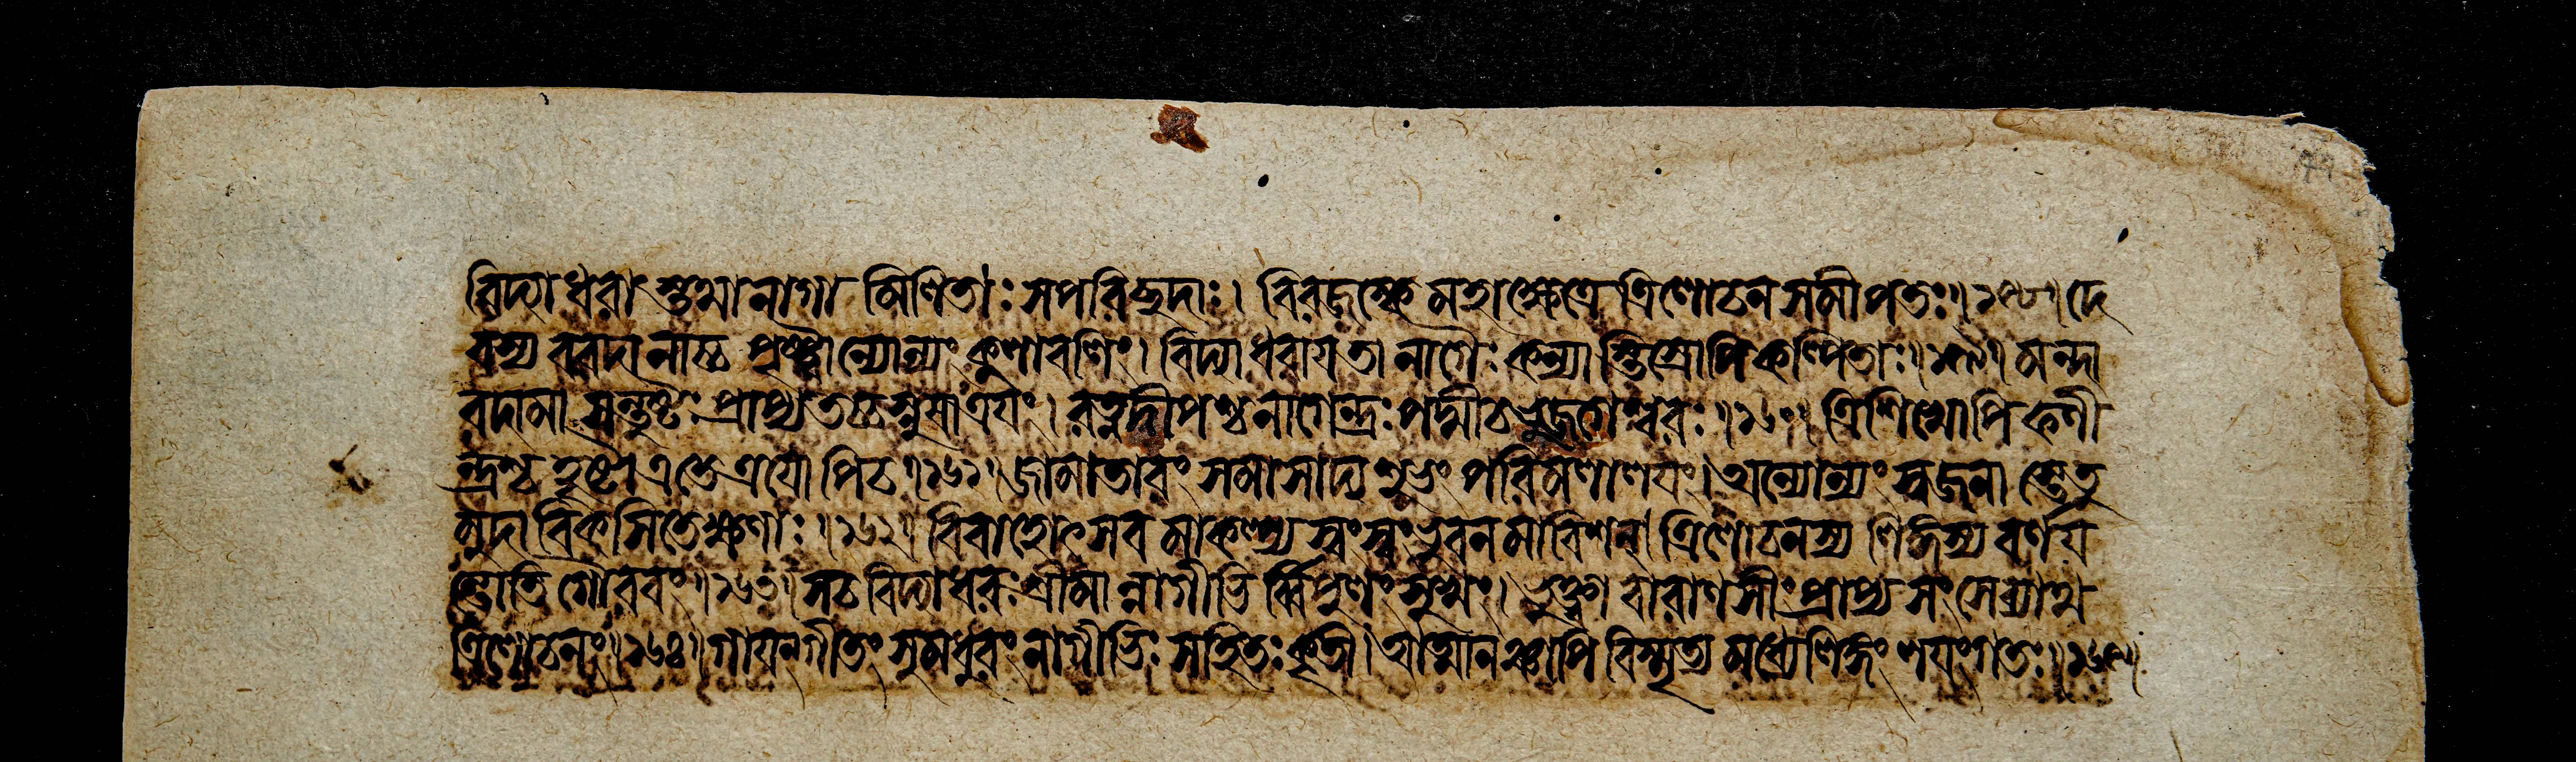 বিদ্যাধরাঃ স্তুত্মানাগা মিলিতাঃ সপরিচ্ছদাঃ। বিরজস্কে মহাক্ষেত্রে ত্রিলোচন সমীপতঃ॥১৫৮॥ দে
বস্য বরদানাচ্চ পৃষ্ট্বান্যোন্যং কুলাবলিং। বিদ্যাধরায় তা নাগৈঃ কন্যাস্তিস্রোপি কল্পিতাঃ॥১৫৯॥ মন্দা
রদামা সন্তুষ্টঃ প্রাপ্য তচ্চ স্নুষাত্রয়ং। রত্নদীপশ্চ নাগেন্দ্রঃ পদ্মীচ ভুজগেশ্বরঃ॥১৬০॥ ত্রিশিখোপি ফণী
ন্দ্রশ্চ হৃষ্টা এতে ত্রয়োপিচ॥১৬১॥ জামাতারং সমাসাদ্য শুভং পরিমলালয়ং। অন্যোন্যং স্বজনাস্তেতু
মুদা বিকসিতেক্ষণাঃ॥১৬২॥ বিবাহোৎসব মাকল্প্য স্বং স্বং ভুবন মাবিশন্। ত্রিলোচনস্য লিঙ্গস্য বর্ণয়
ন্তোতি গৌরবং॥১৬৩॥ সচ বিদ্যাধরঃ শ্রীমান্নাগীভি র্বিপুলং সুখং। ভুক্ত্বা বারাণসীং প্রাপ্য সংসেব্যাথ
ত্রিলোচনং॥১৬৪॥ গায়ন্গীতং সুমধুরং নাগীভিঃ সহিতঃ কৃতী। আত্মানঞ্চাপি বিস্মৃত্য মধ্যেলিঙ্গং লয়ংগতঃ॥১৬৫॥